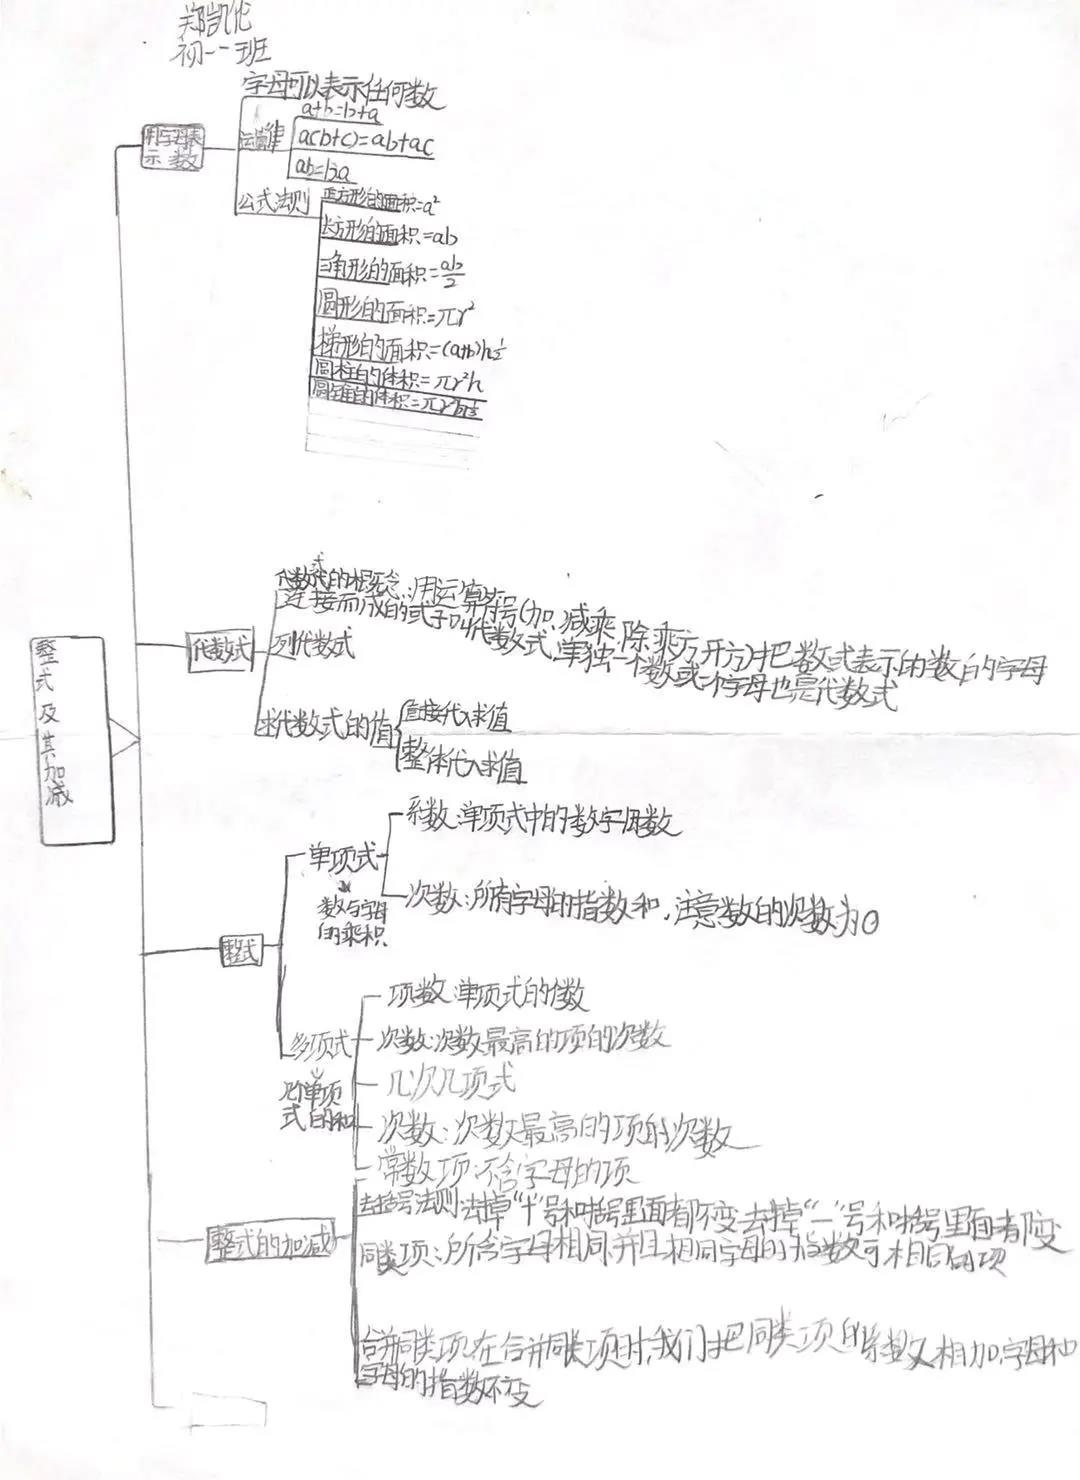 郑凯伦
初一一班
字母可以表示任何数
用字母表
示数
运算律
a+b=b+a
a(b+c)=ab+ac
ab=ba
公式法则
正方形的面积=a²
长方形的面积=ab
三角形的面积=ab/2
圆形的面积=πr²
梯形的面积=(a+b)h½
圆柱的体积=πr²h
圆锥的体积=πr²h⅓
整式及其加减
代数式
代数式的概念:用运算符号(加、减乘、除、乘方、开方)把数或表示的数的字母
连接而成的式子叫代数式,单独一个数或一个字母也是代数式
列代数式
求代数式的值
直接代入求值
整体代入求值
整式
单项式
数与字母
的乘积
系数:单项式中的数字因数
次数:所有字母的指数和,注意数的次数为0
多项式
几个单项
式的和
项数:单项式的个数
次数:次数最高的项的次数
几次几项式
次数:次数最高的项的次数
常数项:不含字母的项
整式的加减
去括号法则:去掉“+”号和括号里面都不变去掉“一”号和括号里面都变
同类项:所含字母相同,并且相同字母的指数可相同的项
合并同类项:在合并同类项时,我们把同类项的系数相加,字母和
字母的指数不变